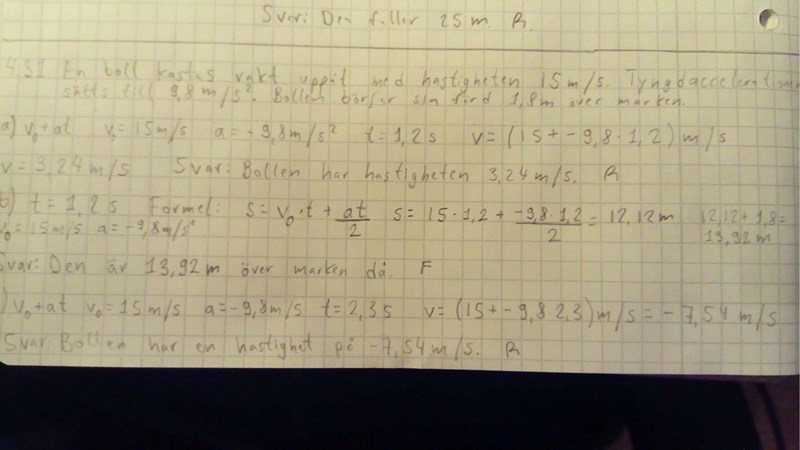 Svar: Den faller 25 m. R.
4.31 En boll kastas rakt uppåt med hastigheten 15 m/s. Tyngdaccelerationen
sätts till 9,8 m/s². Bollen börjar sin färd 1,8 m över marken.
a) v₀+at v₀=15m/s a=-9,8m/s² t=1,2s v=(15+-9,8·1,2)m/s
v=3,24m/s Svar: Bollen har hastigheten 3,24 m/s. R
b) t=1,2s Formel: s=v₀·t+at/2 s=15·1,2+-9,8·1,2/2=12,12m 12,12+1,8=
v₀=15m/s a=-9,8m/s² 13,92m
Svar: Den är 13,92 m över marken då. F
) v₀+at v₀=15m/s a=-9,8m/s t=2,3s v=(15+-9,8 2,3)m/s=-7,54 m/s
Svar Bollen har en hastighet på -7,54 m/s. R